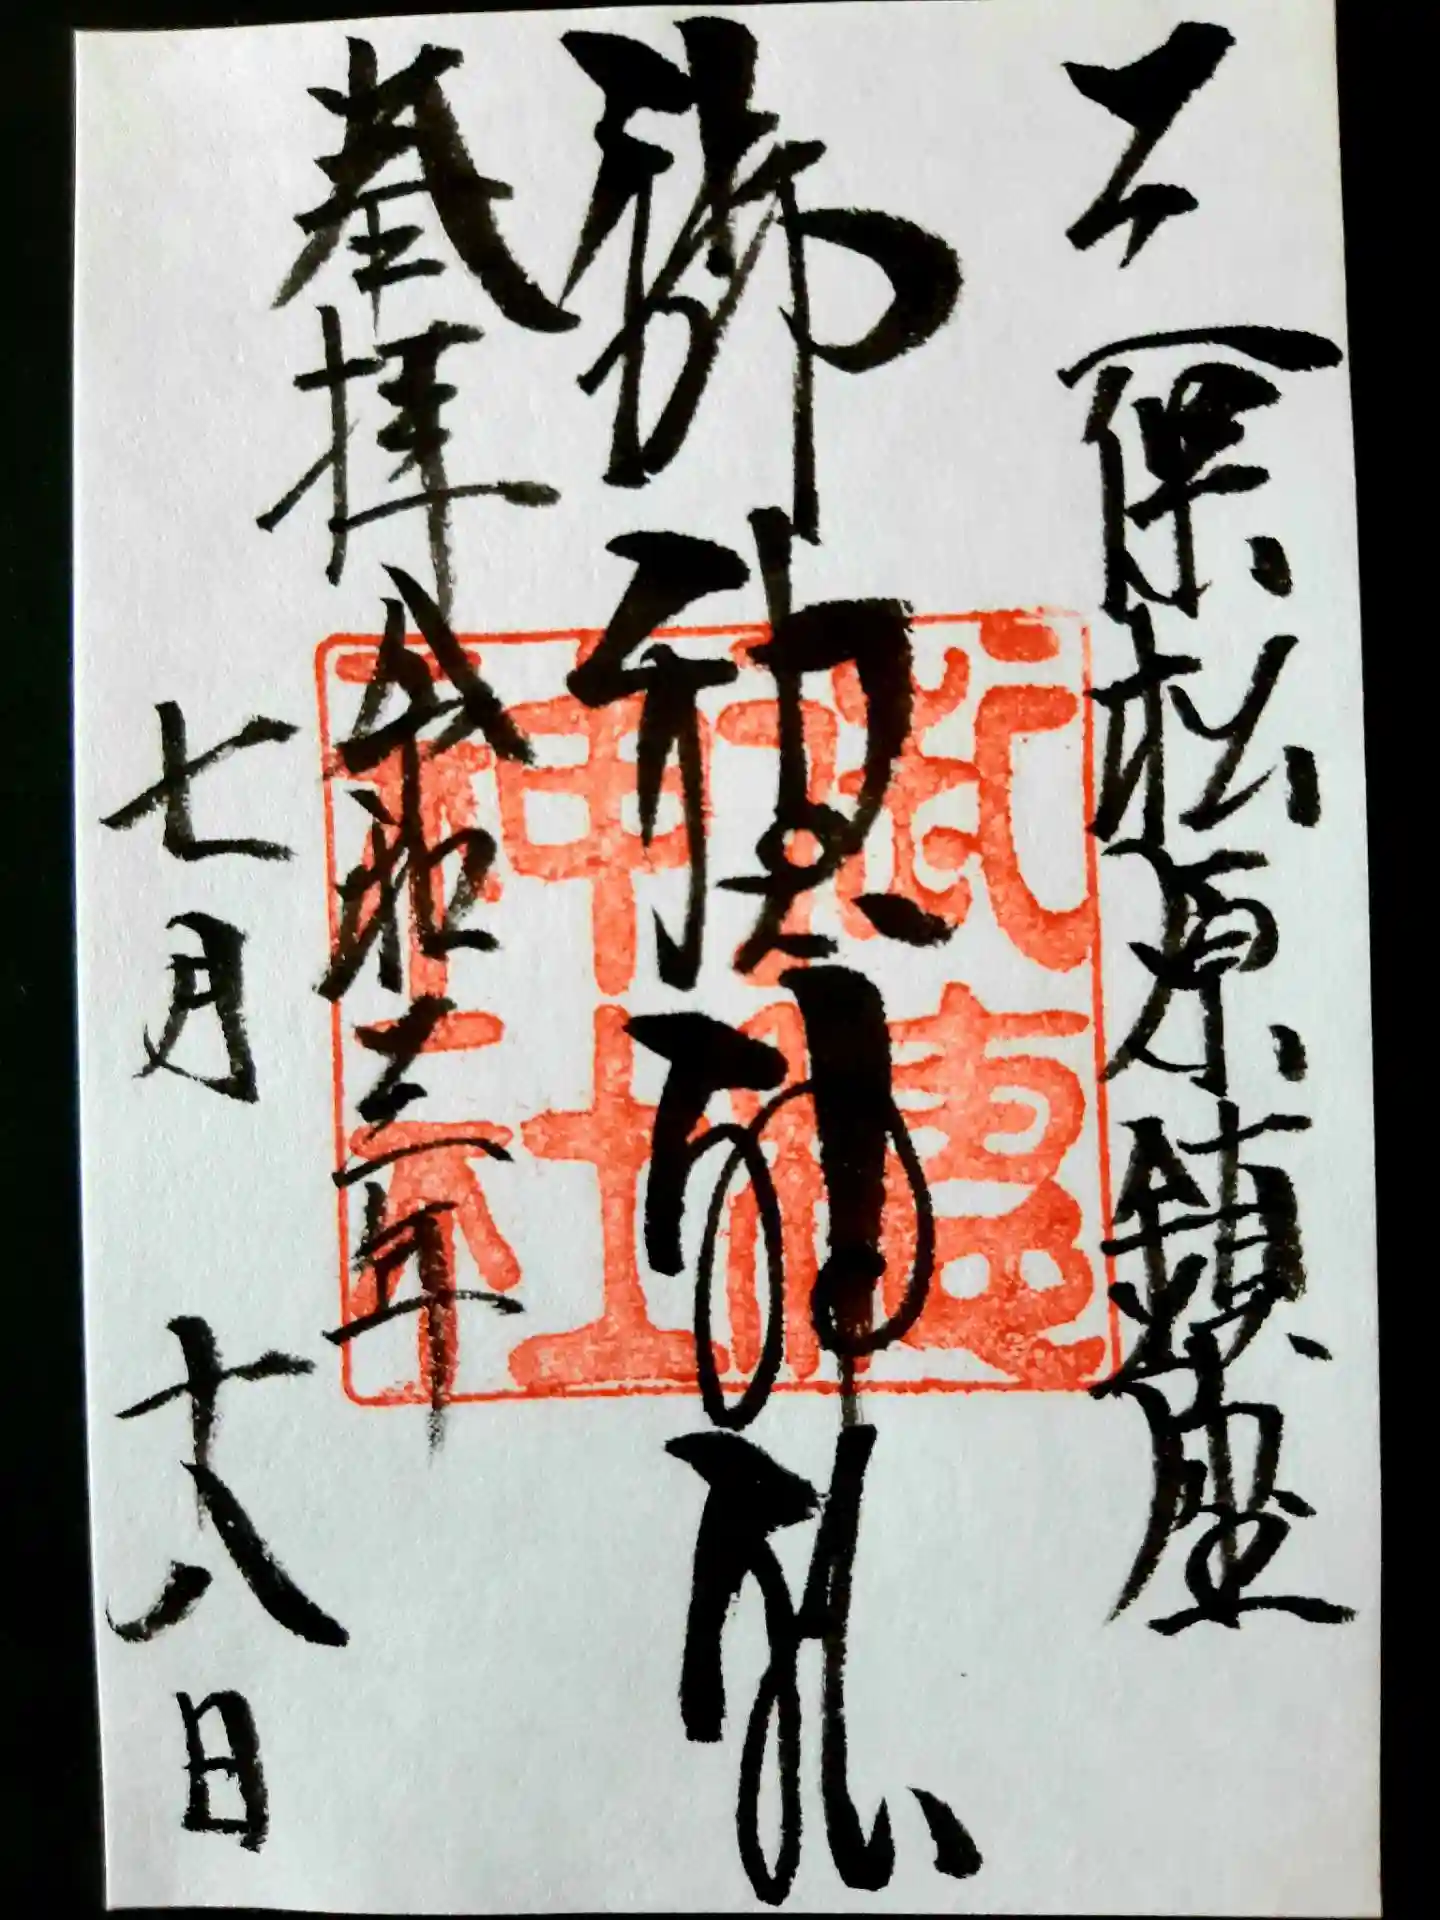 三保松原鎮座
御穂神社
御穂神社
奉拝
令和三年
七月十八日